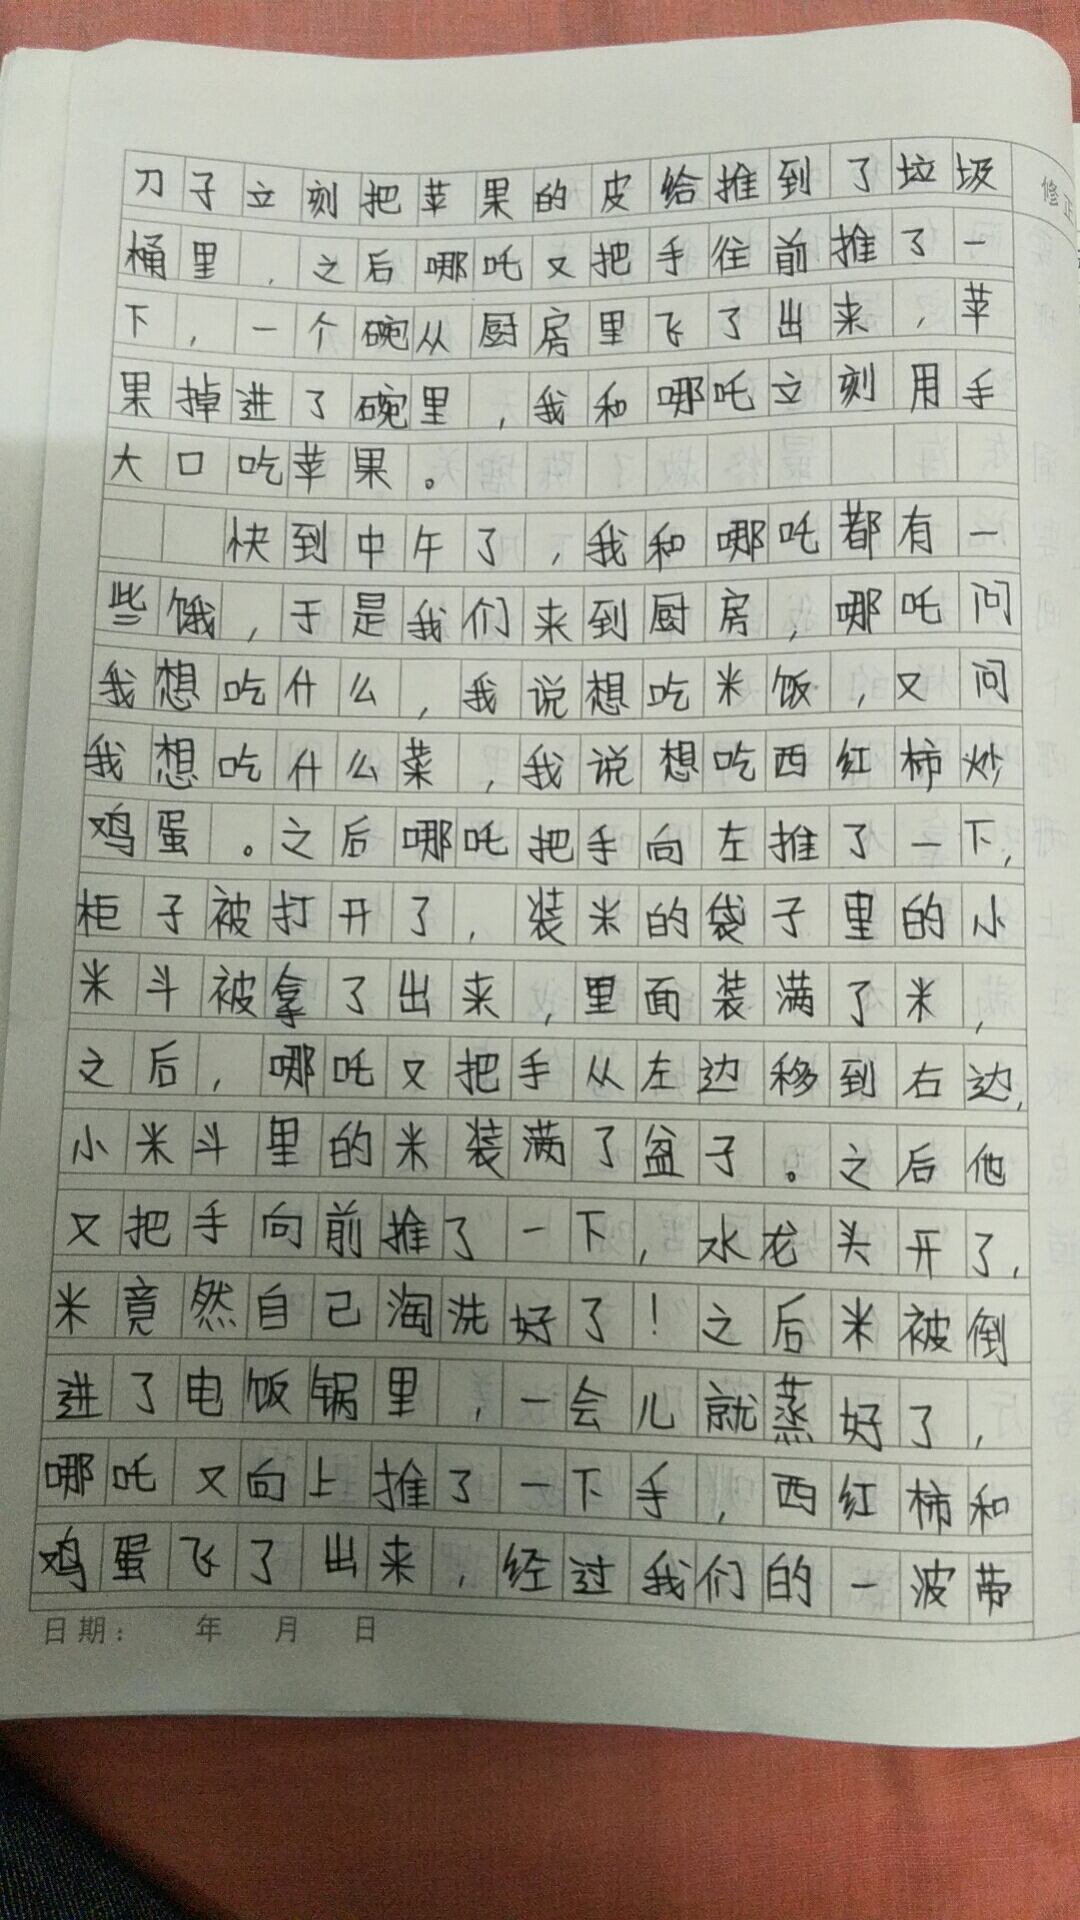 刀子立刻把苹果的皮给推到了垃圾
修正
桶里，之后哪吒又把手往前推了一
下，一个碗从厨房里飞了出来，苹
果掉进了碗里，我和哪吒立刻用手
大口吃苹果。
快到中午了，我和哪吒都有一
些饿，于是我们来到厨房，哪吒问
我想吃什么，我说想吃米饭，又问
我想吃什么菜，我说想吃西红柿炒
鸡蛋。之后哪吒把手向左推了一下，
柜子被打开了，装米的袋子里的小
米斗被拿了出来，里面装满了米，
之后，哪吒又把手从左边移到右边，
小米斗里的米装满了盆子。之后他
又把手向前推了一下，水龙头开了，
米竟然自己淘洗好了！之后米被倒
进了电饭锅里，一会儿就蒸好了，
哪吒又向上推了一下手，西红柿和
鸡蛋飞了出来，经过我们的一波带
日期： 年 月 日